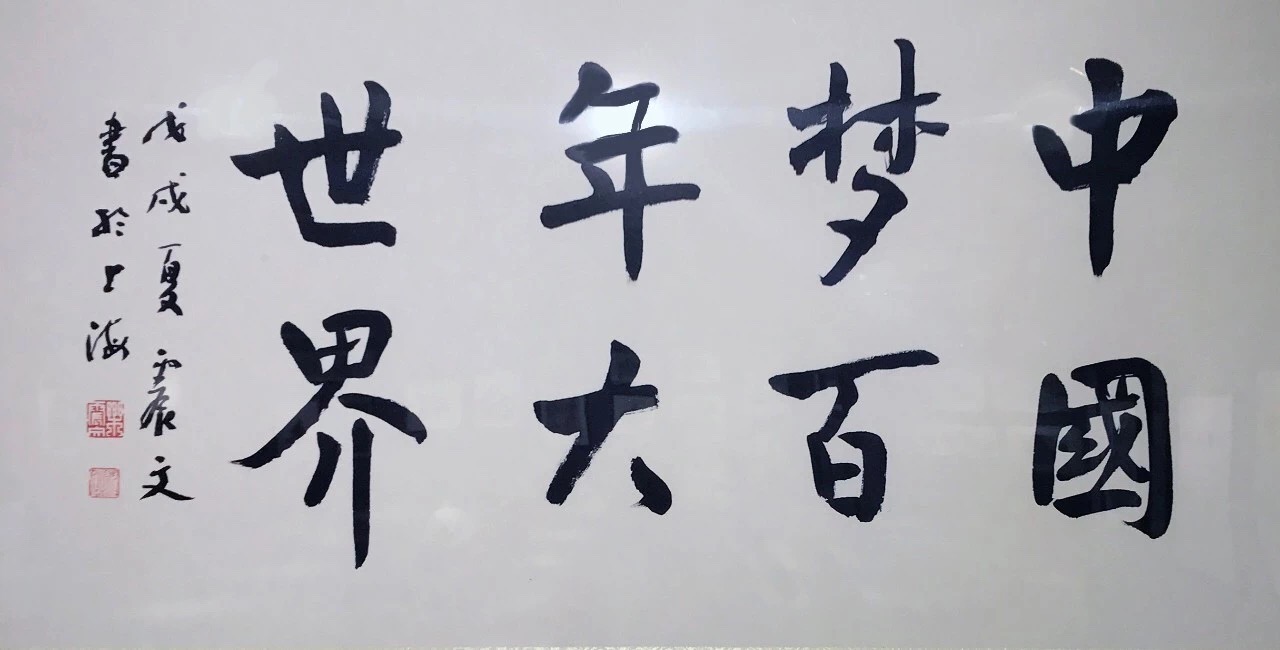 中國
梦百
年大
世界
戊戌夏震文
書於上海